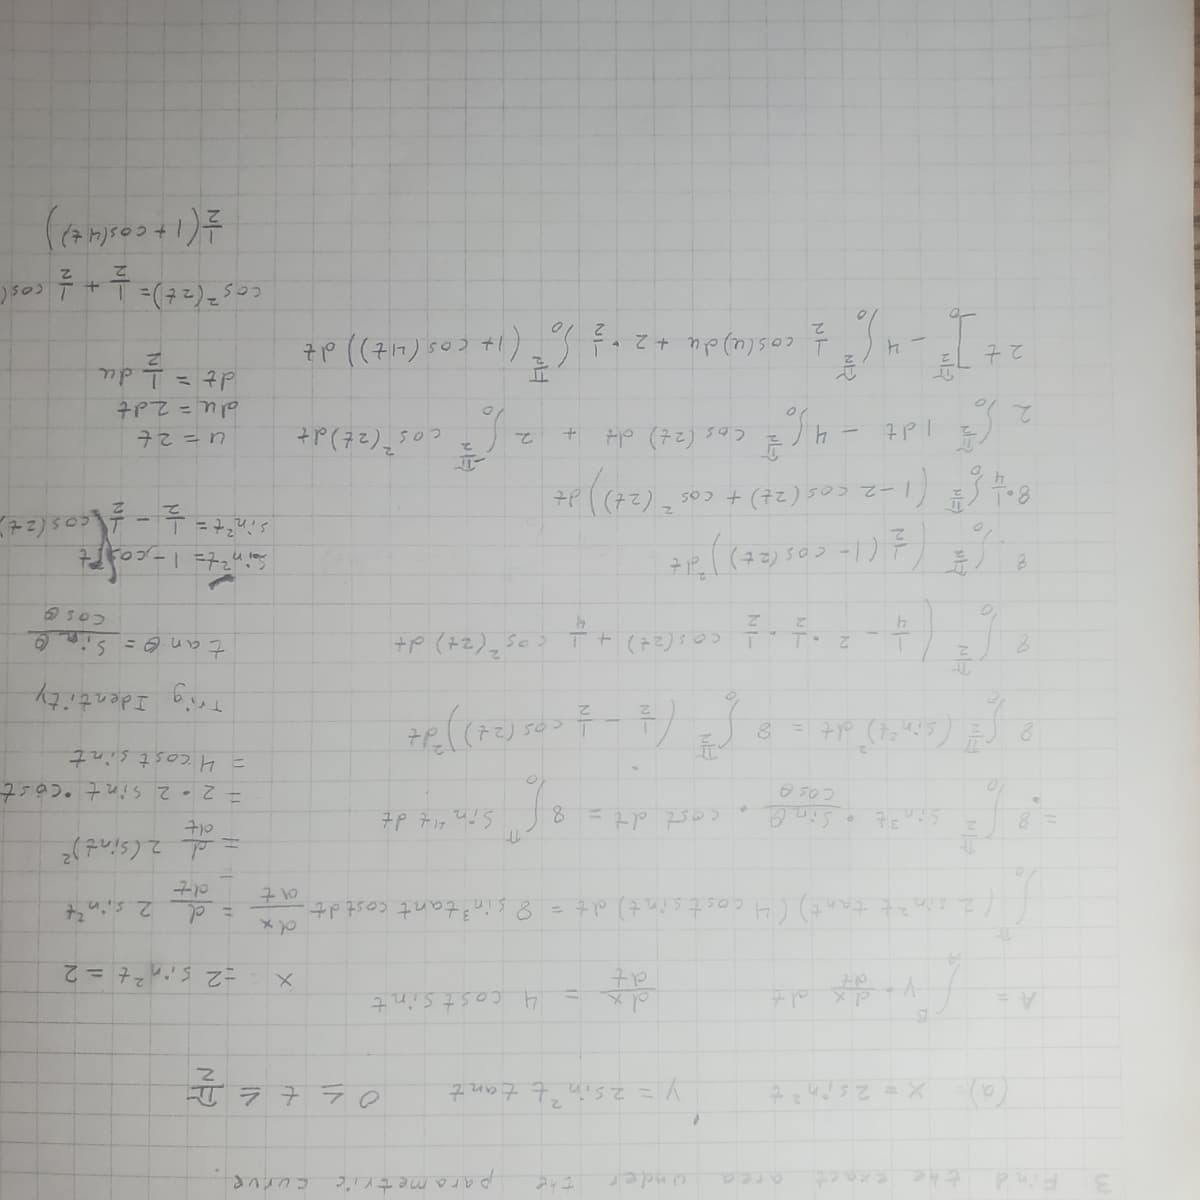 3 Find the exact area under the parametric curve.
(a) x = 2sin²t y = 2sin²t tant 0 ≤ t ≤ π/2
A = ∫_A^B y · dx/dt dt dx/dt = 4 cost sint x = 2 sin²t = 2
∫_0^π (2 sin²t tant)(4 cost sint) dt = 8 sin³t tant cost dt dx/dt = d/dt 2 sin²t
= 8 ∫_0^{π/2} sin³t · sinθ/cosθ · cost dt = 8 ∫_0^π sin⁴t dt = d/dt 2(sint)²
= 2 · 2 sint · cost
= 4 cost sint
8 ∫_0^{π/2} (sin²t)² dt = 8 ∫_0^{π/2} (1/2 - 1/2 cos(2t))² dt
Trig Identity
8 ∫_0^{π/2} (1/4 - 2 · 1/2 · 1/2 cos(2t) + 1/4 cos²(2t) dt tanθ = sinθ/cosθ
8 ∫_0^{π/2} (1/2 (1 - cos(2t))² dt sin²t = 1 - cos²t
sin²t = 1/2 - 1/2 cos(2t)
8 · 1/4 ∫_0^{π/2} (1 - 2 cos(2t) + cos²(2t)) dt
2 ∫_0^{π/2} 1 dt - 4 ∫_0^{π/2} cos(2t) dt + 2 ∫_0^{π/2} cos²(2t) dt u = 2t
du = 2dt
dt = 1/2 du
2t]_0^{π/2} - 4 ∫_0^{π/2} 1/2 cos(u) du + 2 · 1/2 ∫_0^{π/2} (1 + cos(4t)) dt
cos²(2t) = 1/2 + 1/2 cos(
1/2 (1 + cos(4t))